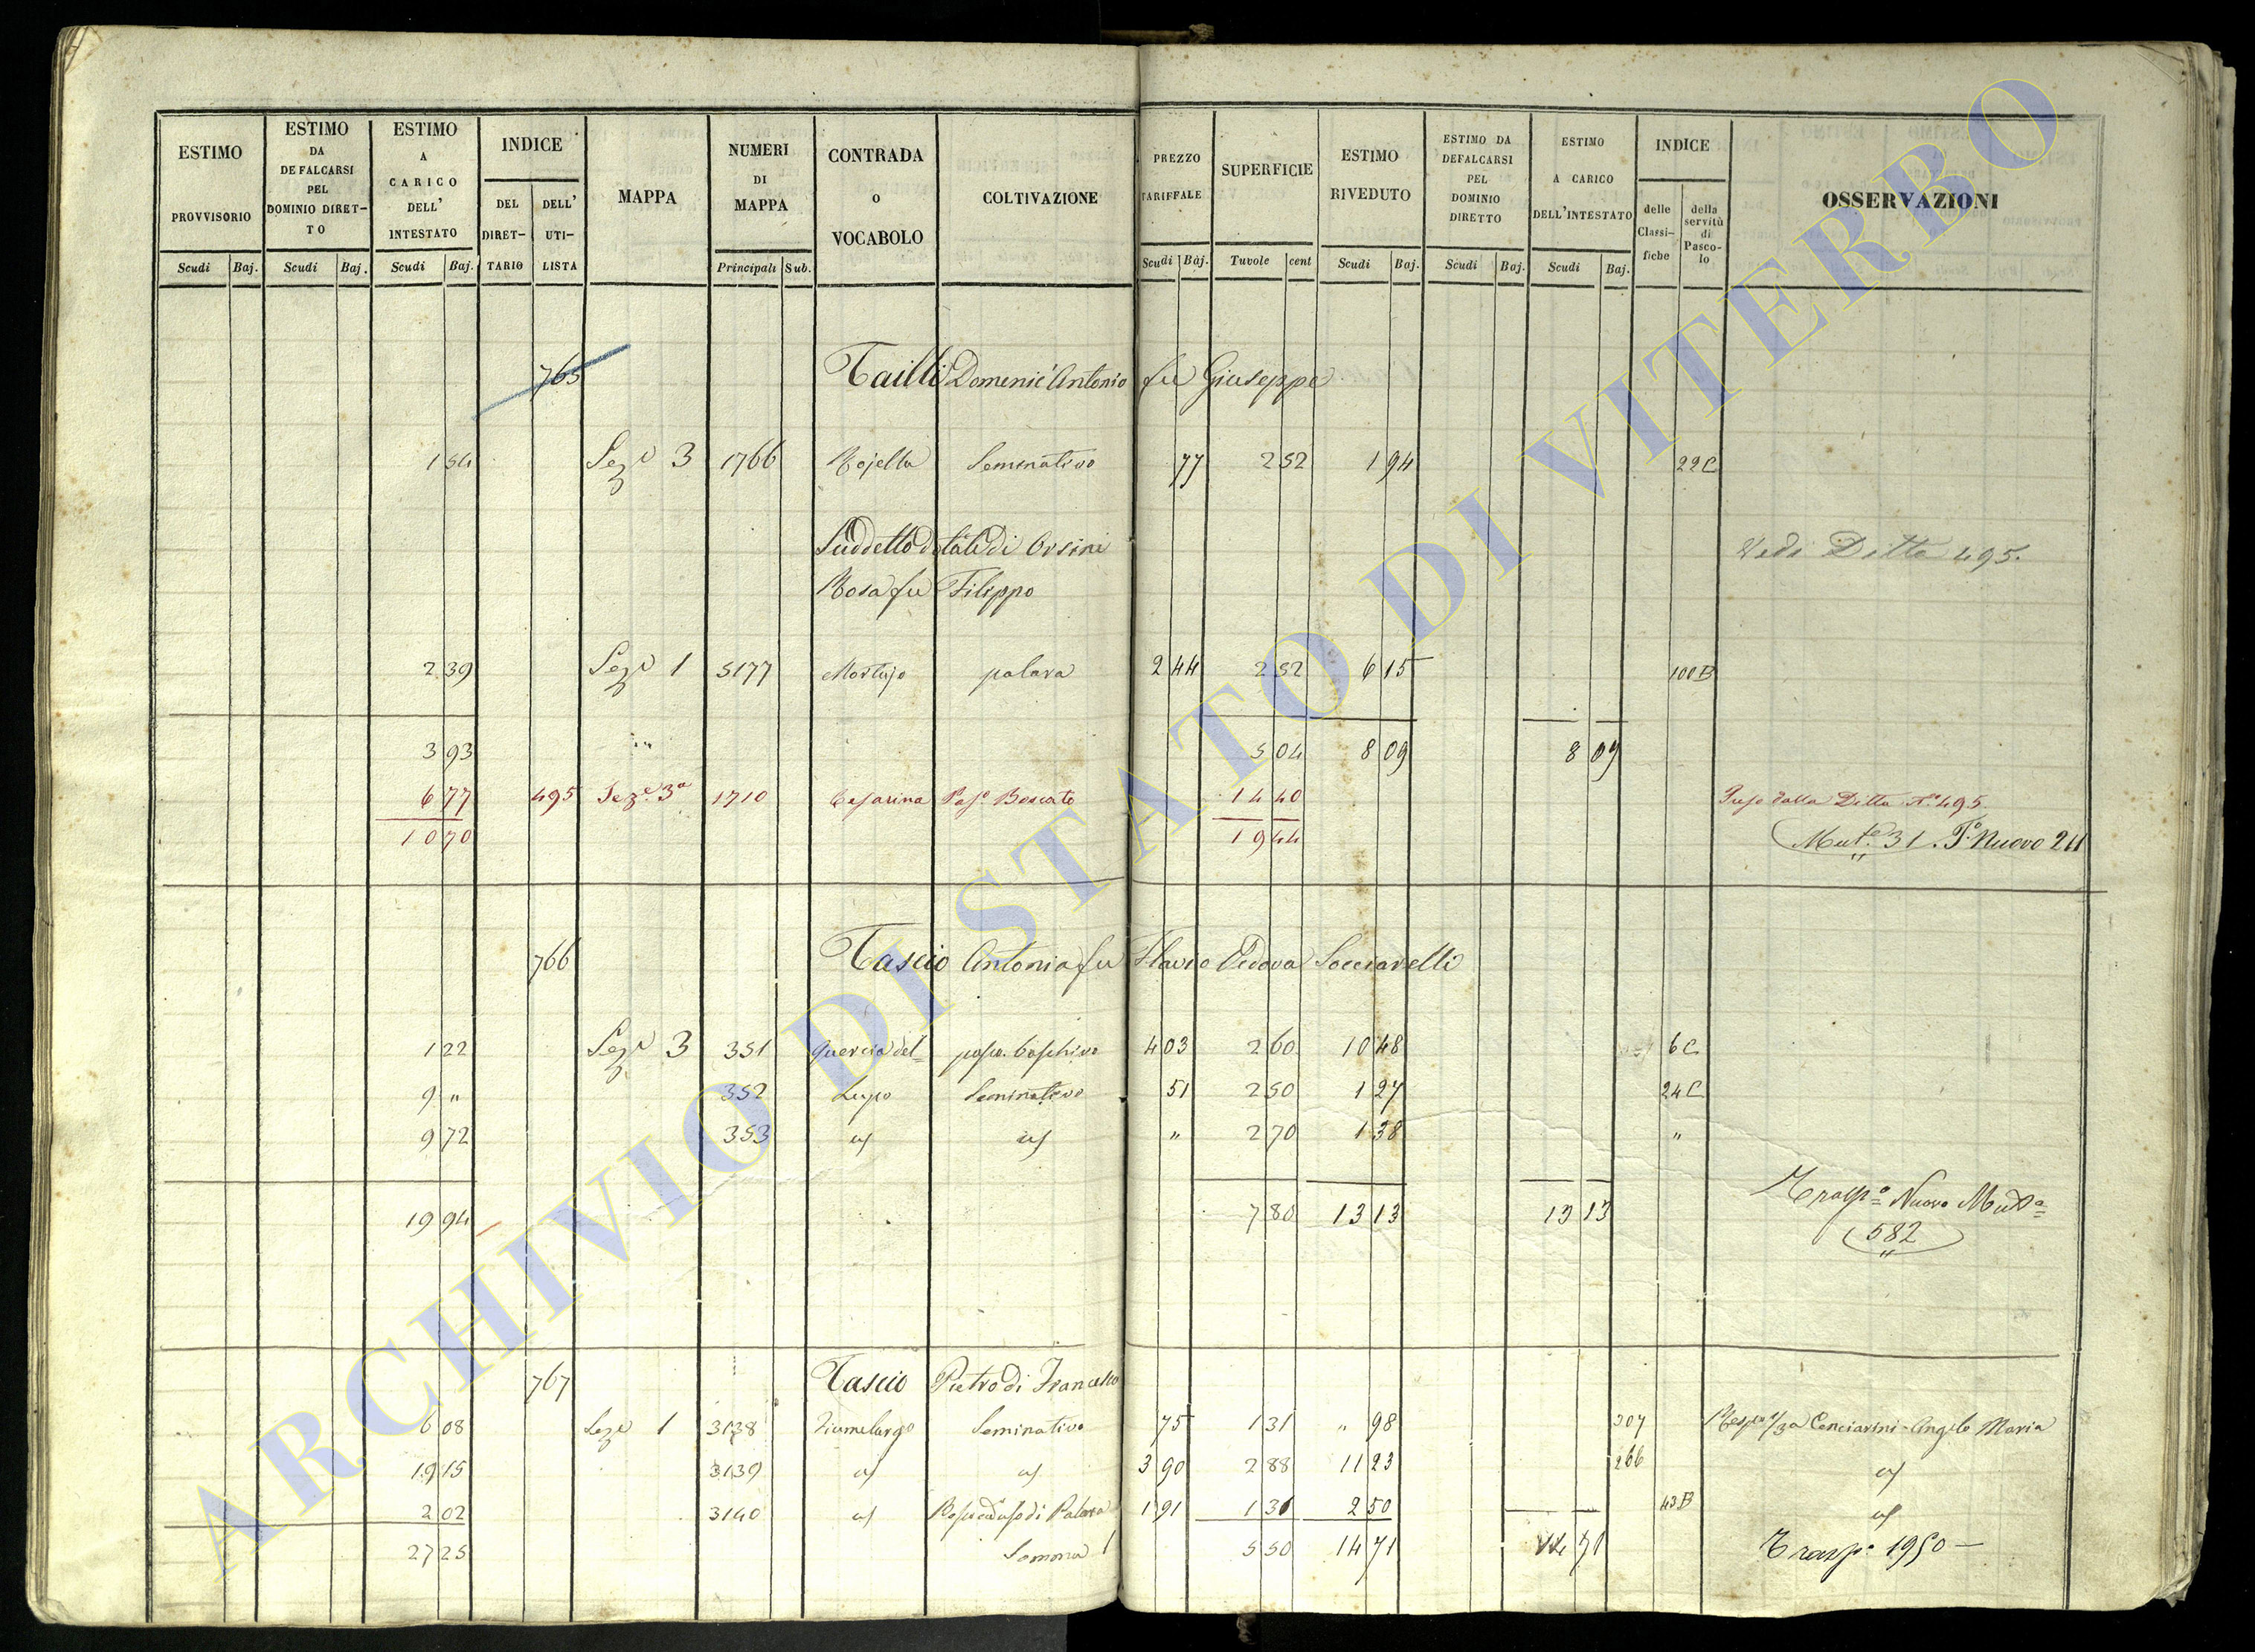 ESTIMO PROVVISORIO Scudi Baj.
ESTIMO DA DEFALCARSI PEL DOMINIO DIRET-TO Scudi Baj.
ESTIMO A CARICO DELL' INTESTATO Scudi Baj.
INDICE DEL DIRET-TARIO DELL' UTI-LISTA
MAPPA
NUMERI DI MAPPA Principali Sub.
CONTRADA O VOCABOLO
COLTIVAZIONE
PREZZO TARIFFALE Scudi Baj.
SUPERFICIE Tavole cent
ESTIMO RIVEDUTO Scudi Baj.
ESTIMO DA DEFALCARSI PEL DOMINIO DIRETTO Scudi Baj.
ESTIMO A CARICO DELL'INTESTATO Scudi Baj.
INDICE delle Classi-fiche della servitù di Pasco-lo
OSSERVAZIONI
765 Tailli Domenic'Antonio fu Giuseppe
1 54 Seze 3 1766 Rojella Seminativo 77 2 52 1 94 22C
Suddetto dotale di Orsini Vedi Ditta 495.
Rosa fu Filippo
2 39 Seze 1 5177 palara 2 44 2 52 6 15 100B
3 93 5 04 8 09 8 09
6 77 495 Seze 3a 1710 Cesarina Paso Boscato 14 40 Preso dalla Ditta No 495
10 70 19 44 Muta 31. To Nuovo 211
766 Tascio Antonia fu Flavio Vedova Socciarelli
1 22 Seze 3 351 Quercia del pasco. boschivo 4 03 2 60 10 48 6C
9 " 352 Lupo Seminativo 51 2 50 1 27 24C
9 72 353 " 2 70 1 38 "
19 94 7 80 13 13 13 13 Traspo Nuovo Muta
582
767 Tascio Pietro di Francesco
6 08 Seze 1 3138 Fiumelargo Seminativo 75 1 31 " 98 307 1/3a Cenciarini Angelo Maria
19 15 3139 3 90 2 88 11 23 266
2 02 3140 1 91 1 31 2 50 43B
27 25 Somma 5 50 14 71 14 71 Traspo 1950
ARCHIVIO DI STATO DI VITERBO